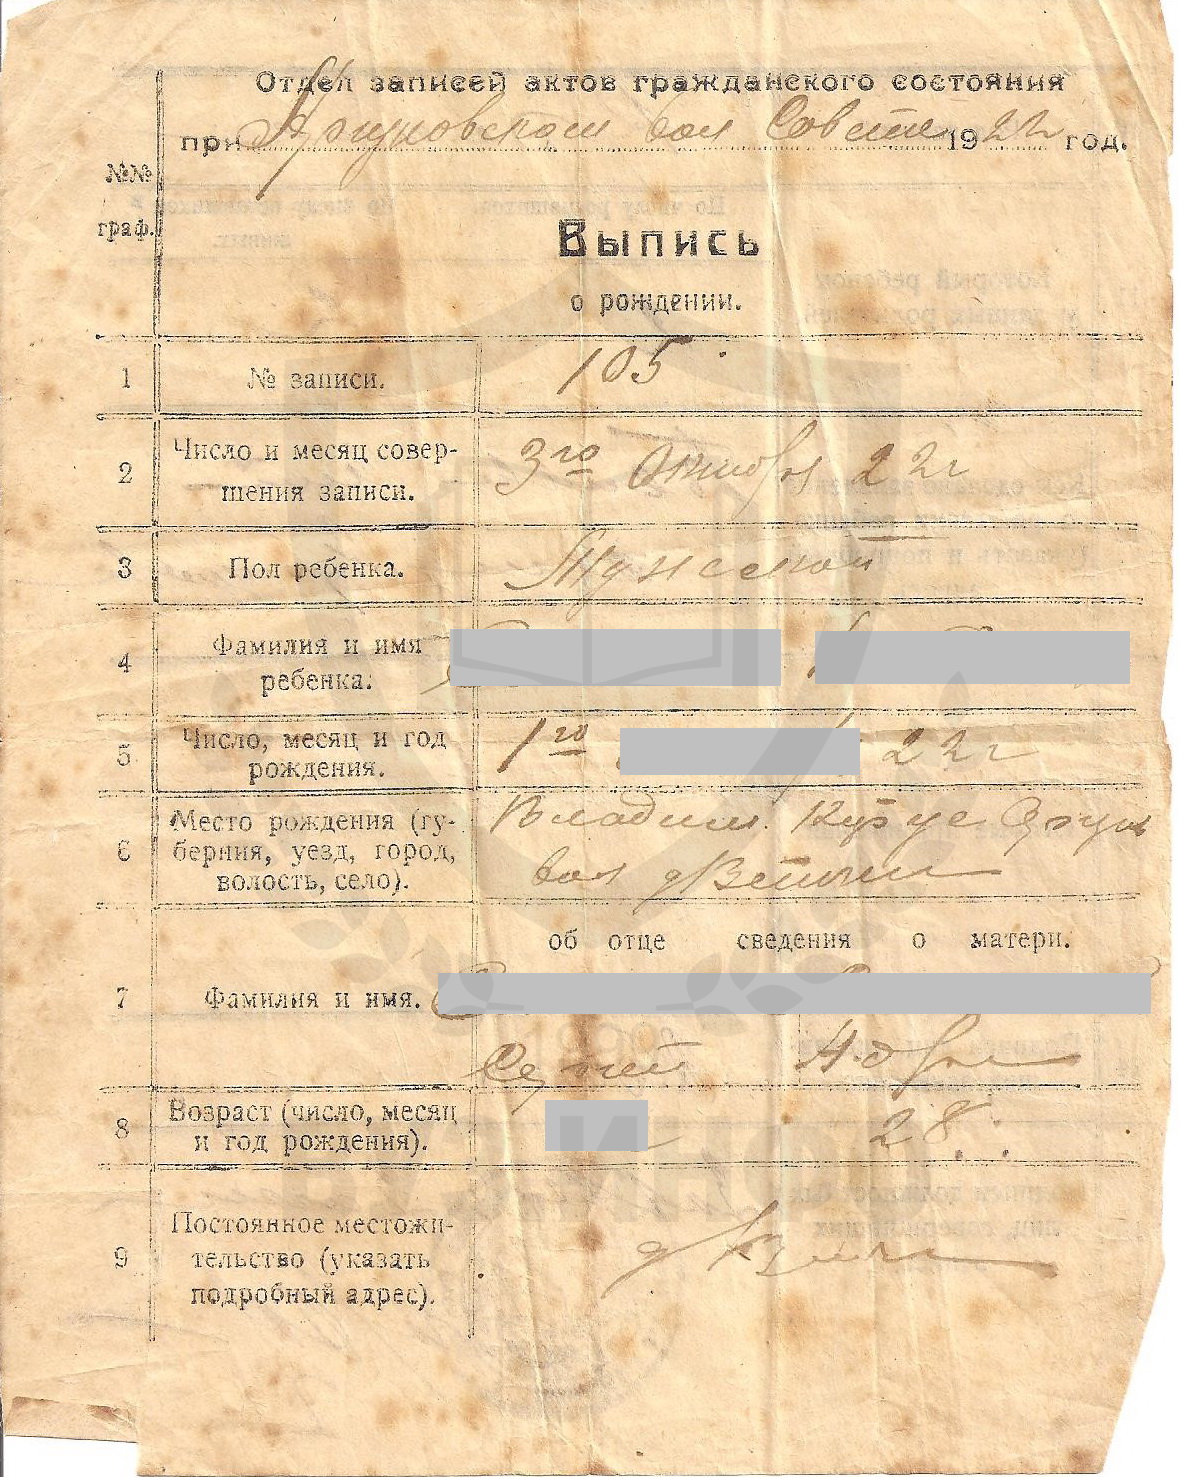 Отдел записей актов гражданского состояния
при Аргуновском вол Совете 1922 год.
№№
граф.
Выпись
о рождении.
1 № записи. 105
2 Число и месяц совер-
шения записи. 3го Октября 22г
3 Пол ребенка. Мужской
4 Фамилия и имя
ребенка.
5 Число, месяц и год
рождения. 1го 22г
6 Место рождения (гу-
берния, уезд, город,
волость, село). Владим.
вол
об отце сведения о матери.
7 Фамилия и имя.
Сергей
8 Возраст (число, месяц
и год рождения). 28.
9 Постоянное местожи-
тельство (указать
подробный адрес).